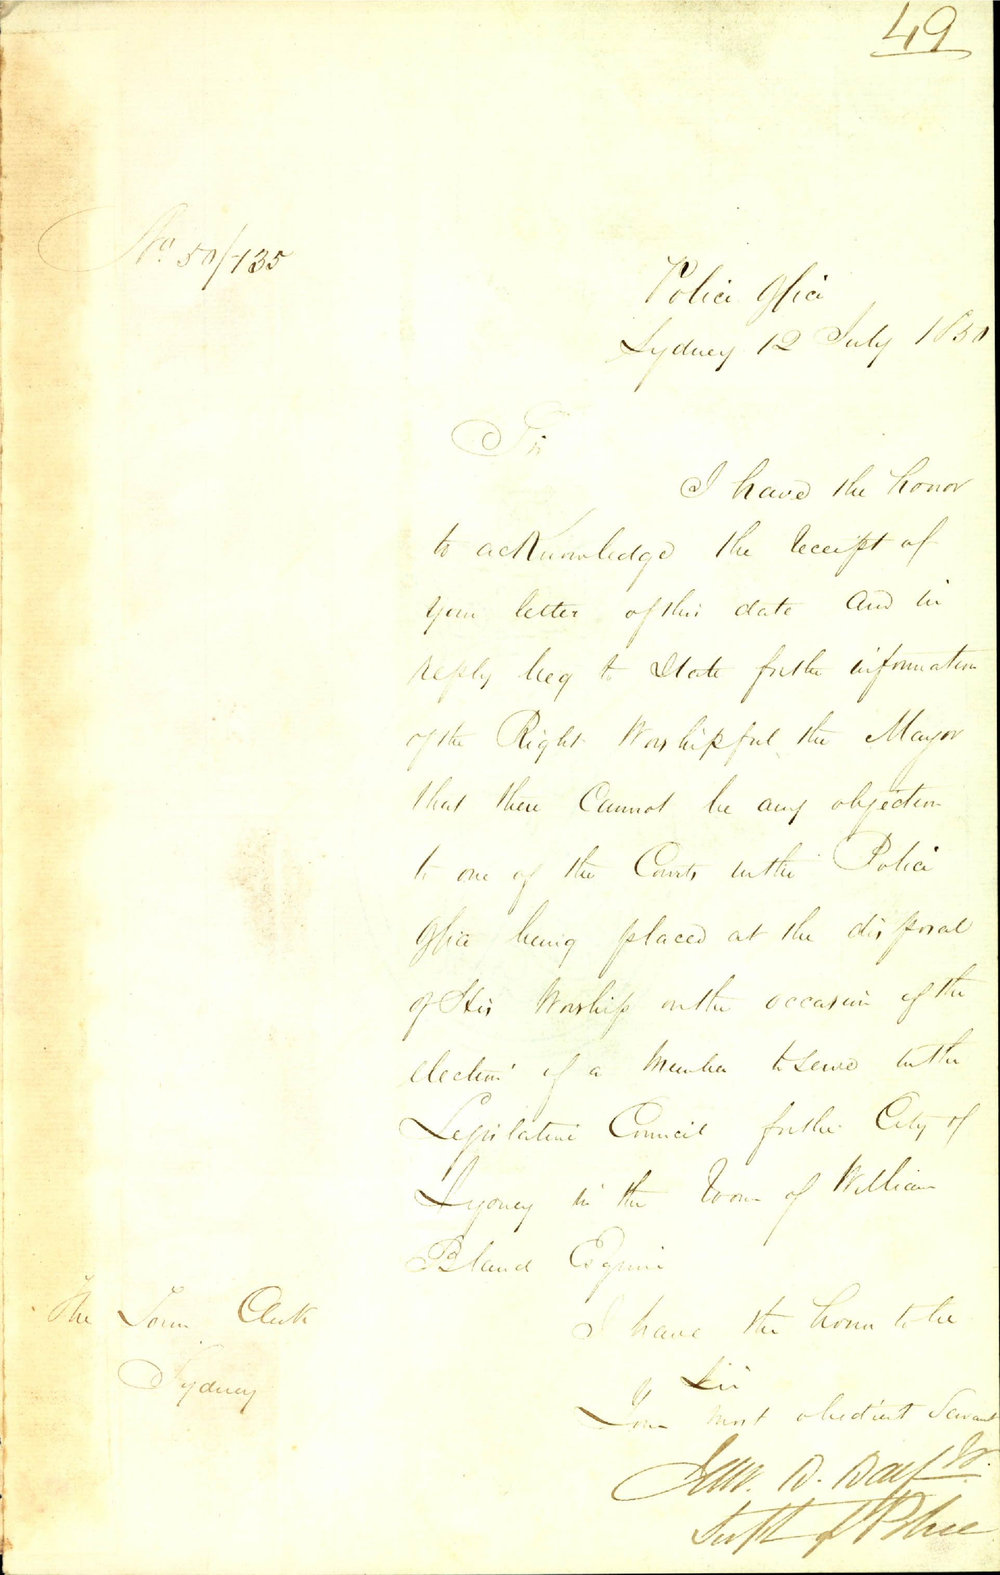 49
No. 50/135
Police Office
Sydney 12 July 1850
Sir
I have the honor
to acknowledge the receipt of
your letter of this date and in
reply beg to State for the information
of the Right Worshipful the Mayor
that there Cannot be any objection
to one of the Courts in the Police
Office being placed at the disposal
of His Worship on the occasion of the
election of a Member to serve in the
Legislative Council for the City of
Sydney in the room of William
Bland Esquire
I have the honor to be
Sir
Your most obedient Servant
Supt of Police
The Town Clerk
Sydney